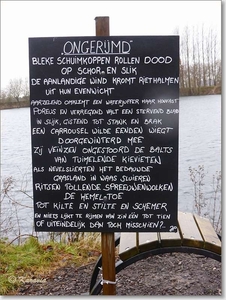 "ONGERIJMD"
BLEKE SCHUIMKOPPEN ROLLEN DOOD
OP SCHOR EN SLIK
DE AANLANDIGE WIND KROMT RIETHALMEN
UIT HUN EVENWICHT
AARZELEND OMARMT EEN HAAR
POREUS EN VALT EEN STERVEND BLAD
IN SLIJK, GISTEND TOT STANK EN BRAK
EEN CARROUSEL WILDE EENDEN WIEGT
DOORGEWINTERD MEE
ZIJ VEINZEN ONGESTOORD DE BALTS
VAN TUIMELENDE KIEVITEN
ALS NEVELSLIERTEN HET BEDAUWDE
GRASLAND IN WAAS SLUIEREN
RITSEN TOLLENDE SPREEUWENWOLKEN
DE HEMEL TOE
TOT KILTE EN STILTE EN SCHEMER
EN NIETS LIJKT TE RIJMEN VAN ZIN ÉÉN TOT TIEN
OF UITEINDELIJK DAN TOCH MISSCHIEN?..